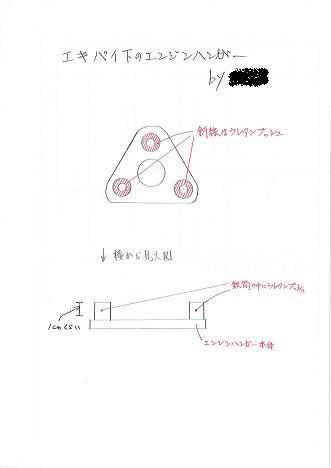 エキパイ下のエンジンハンガー
by
斜線はウレタンブッシュ
↓ 横から見た図
鉄筒の中にウレタンブッシュ
1cmくらい
エンジンハンガー本体